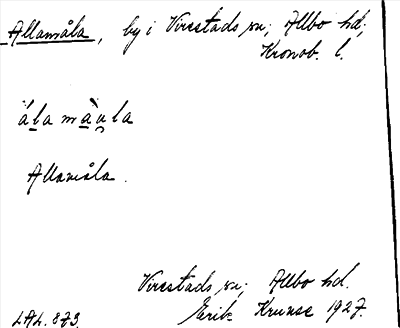 Allamåla, by i Virestads sn; Allbo hd;
Kronob. l.
ála màu̯la
Allamåla.
Virestads sn; Allbo hd.
LAL. 873. Erik Kruuse 1927.